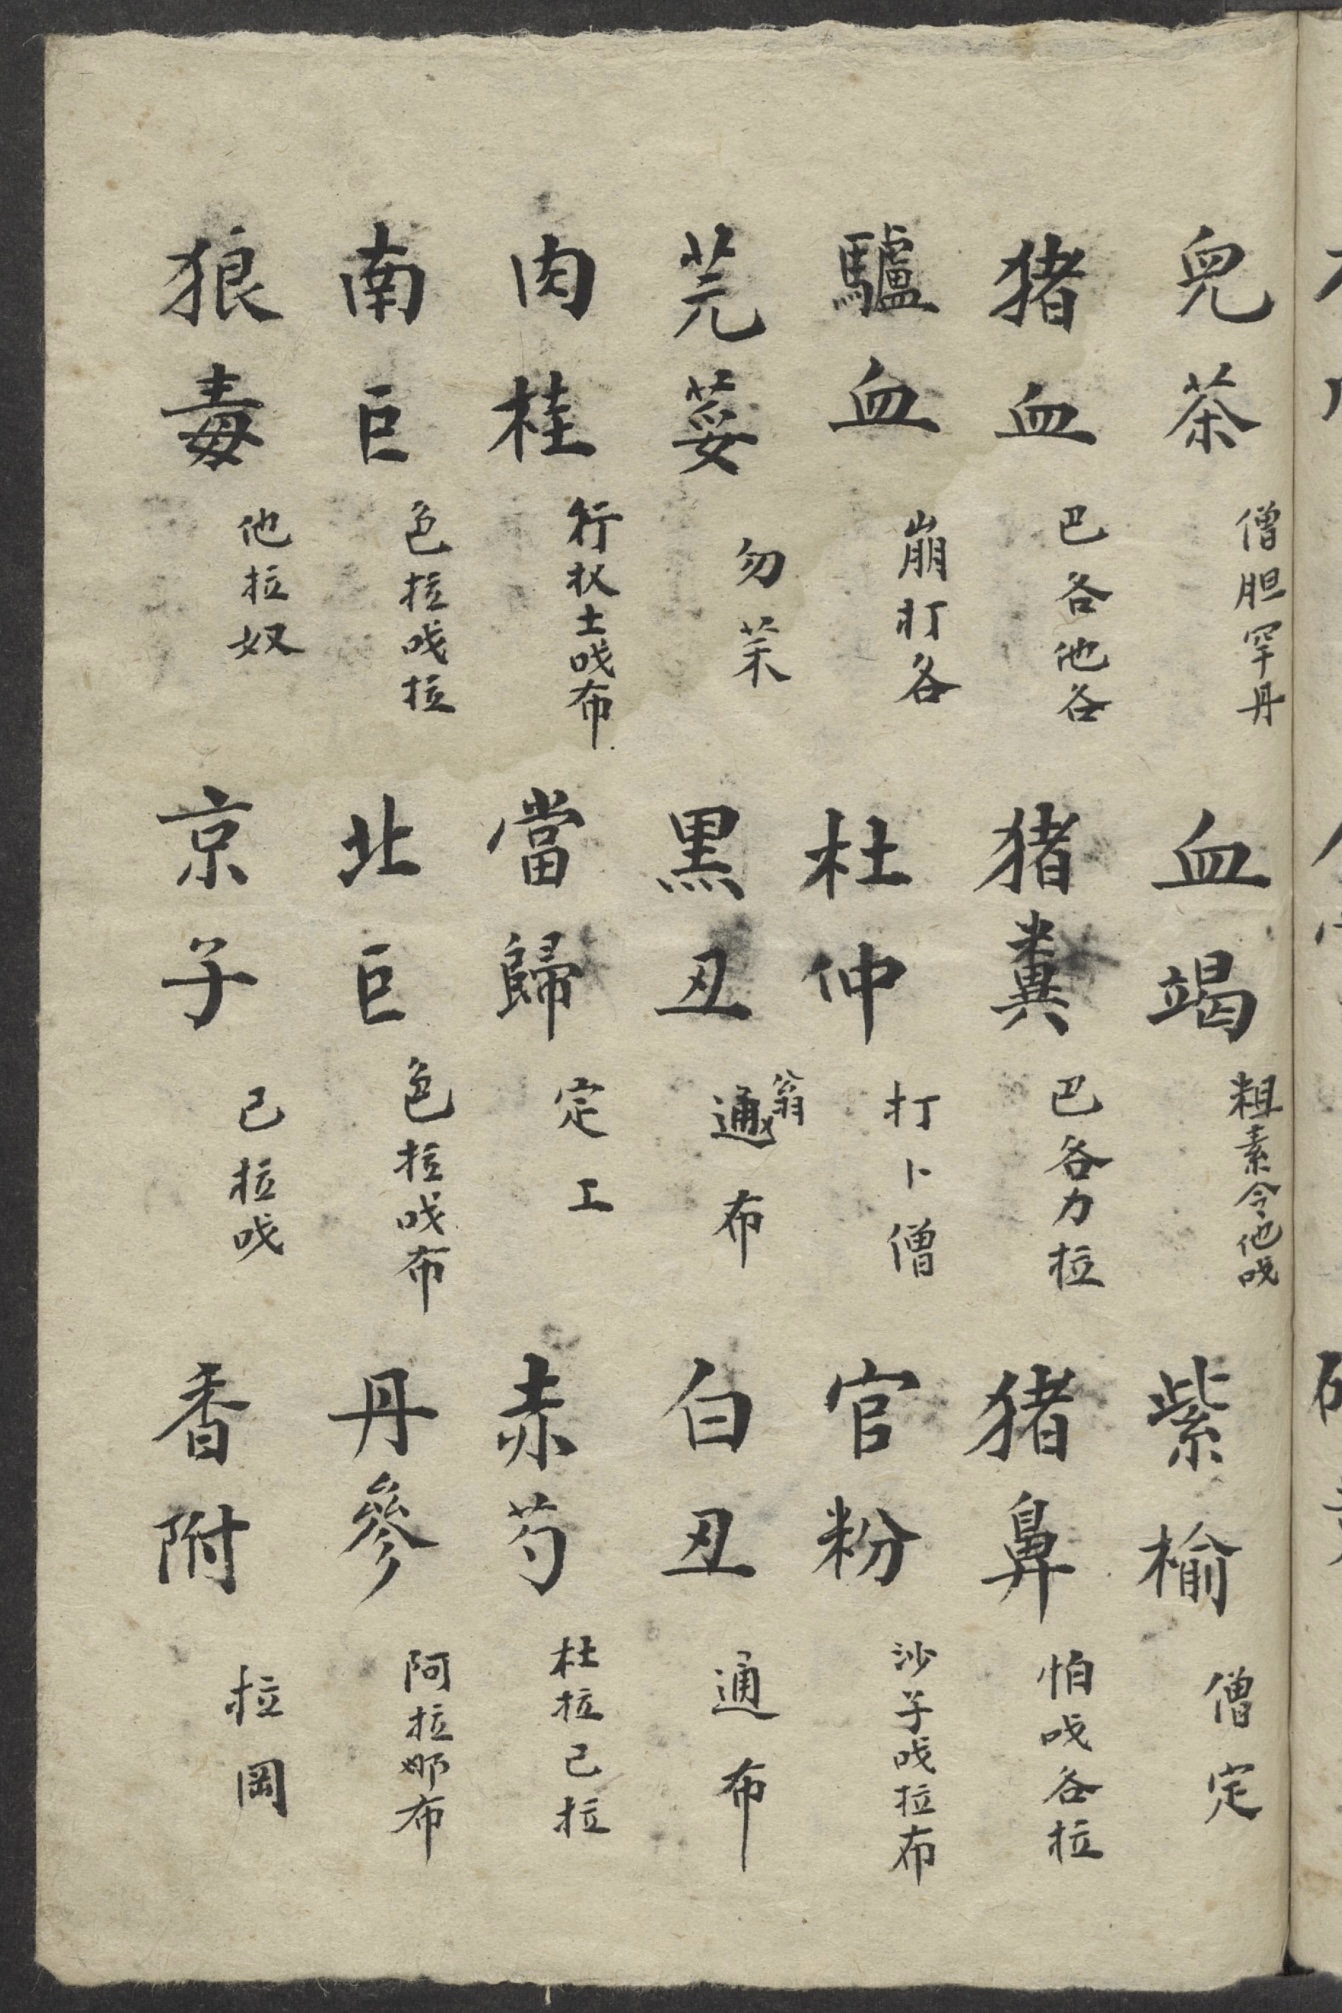 兒茶 僧胆罕丹
血竭 粗素令他哦
紫榆 僧定
猪血 巴各他各
猪糞 巴各力拉
猪鼻 怕哦各拉
驢血 崩打各
杜仲 打卜僧
官粉 沙子哦拉布
芫荽 勿苿
黑丑 通翁布
白丑 通布
肉桂 行杁士哦布
當歸 定工
赤芍 杜拉己拉
南巨 色拉哦拉
北巨 色拉哦布
丹參 阿拉娜布
狼毒 他拉奴
京子 己拉哦
香附 拉岡